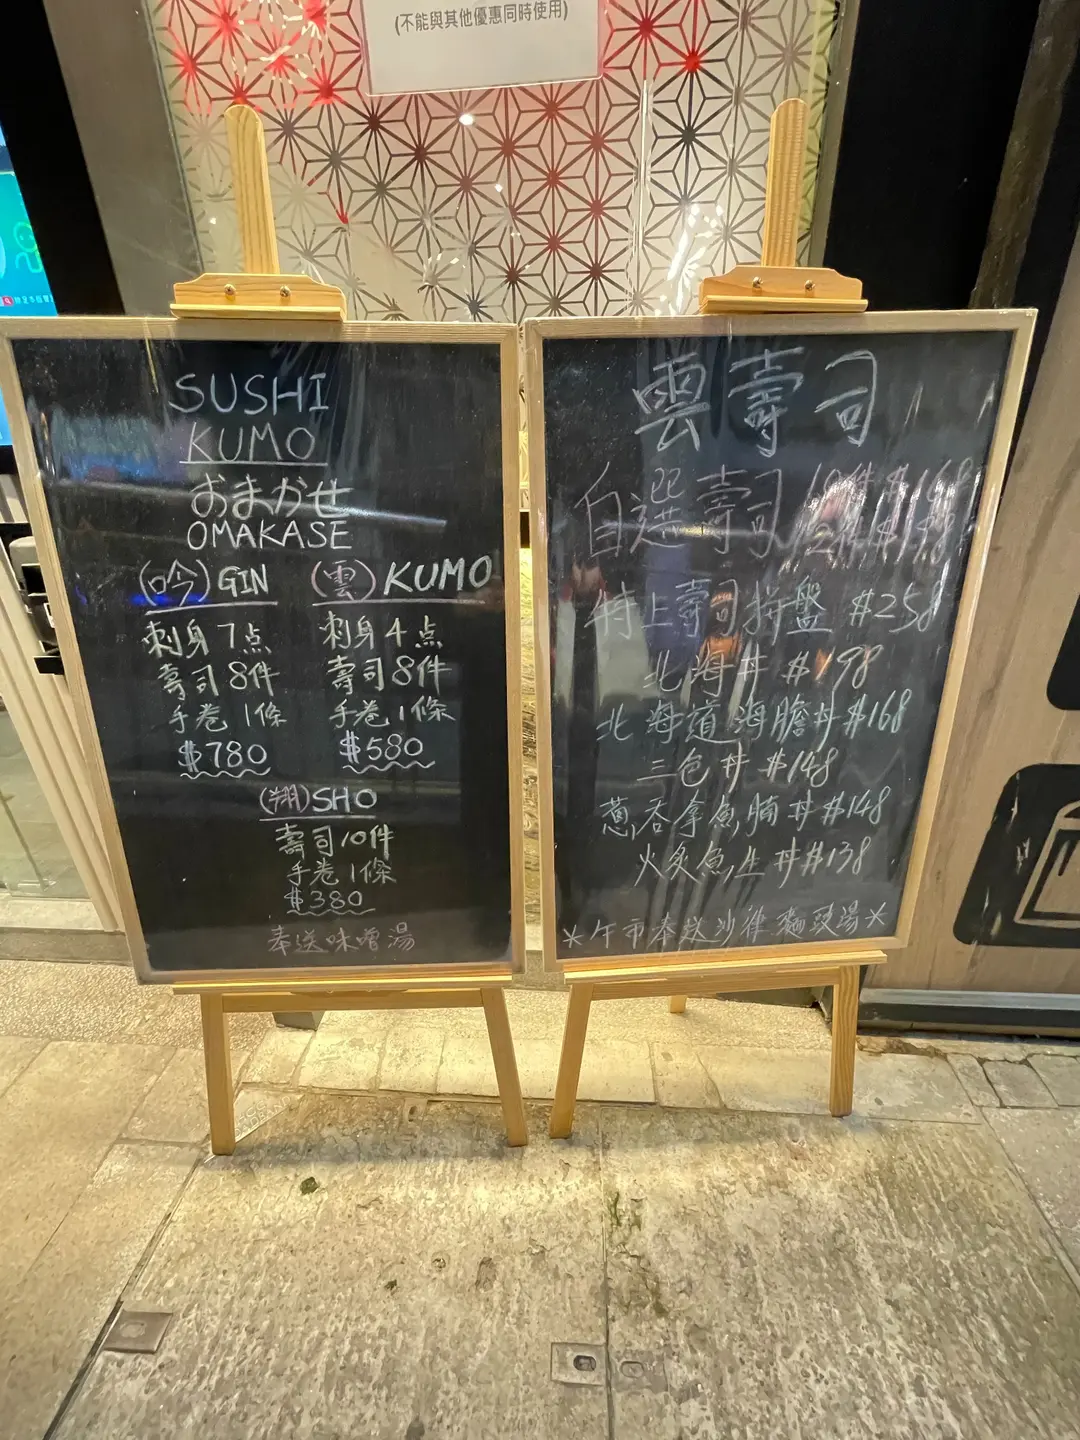 (不能與其他優惠同時使用)
SUSHI
KUMO
おまかせ
OMAKASE
(吟) GIN
刺身 7点
壽司 8件
手卷 1條
$780
(雲) KUMO
刺身 4点
壽司 8件
手卷 1條
$580
(翔) SHO
壽司 10件
手卷 1條
$380
奉送味噌湯
雲壽司
自選壽司
特上壽司拼盤 $258
北海丼 $198
北海道海膽丼 $168
三色丼 $148
蔥吞拿魚腩丼 $148
火炙魚生丼 $138
*午市奉送沙律 麵豉湯*